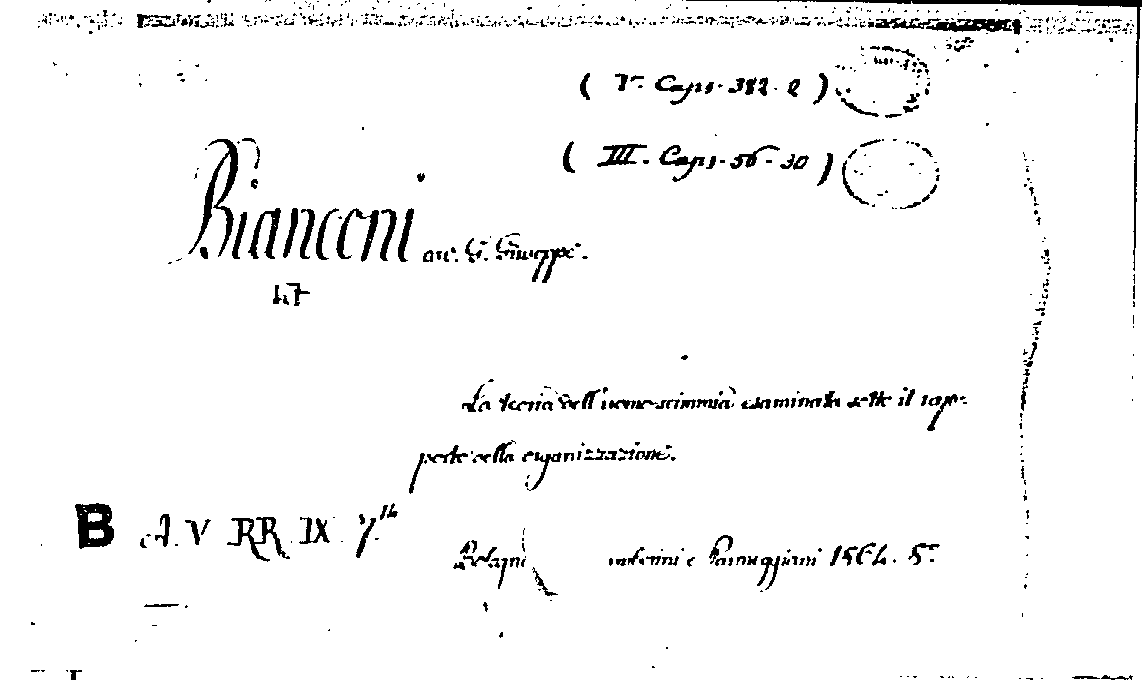 ( V. Caps. 382. 2 )
( III. Caps. 56. 30 )
Bianconi G. Giuseppe.
La teoria dell'uomo-scimmia esaminata sotto il rap-
porto della organizzazione.
B A. V RR. IX. 7.
Bologna Gamberini e Parmeggiani 1864. 8°